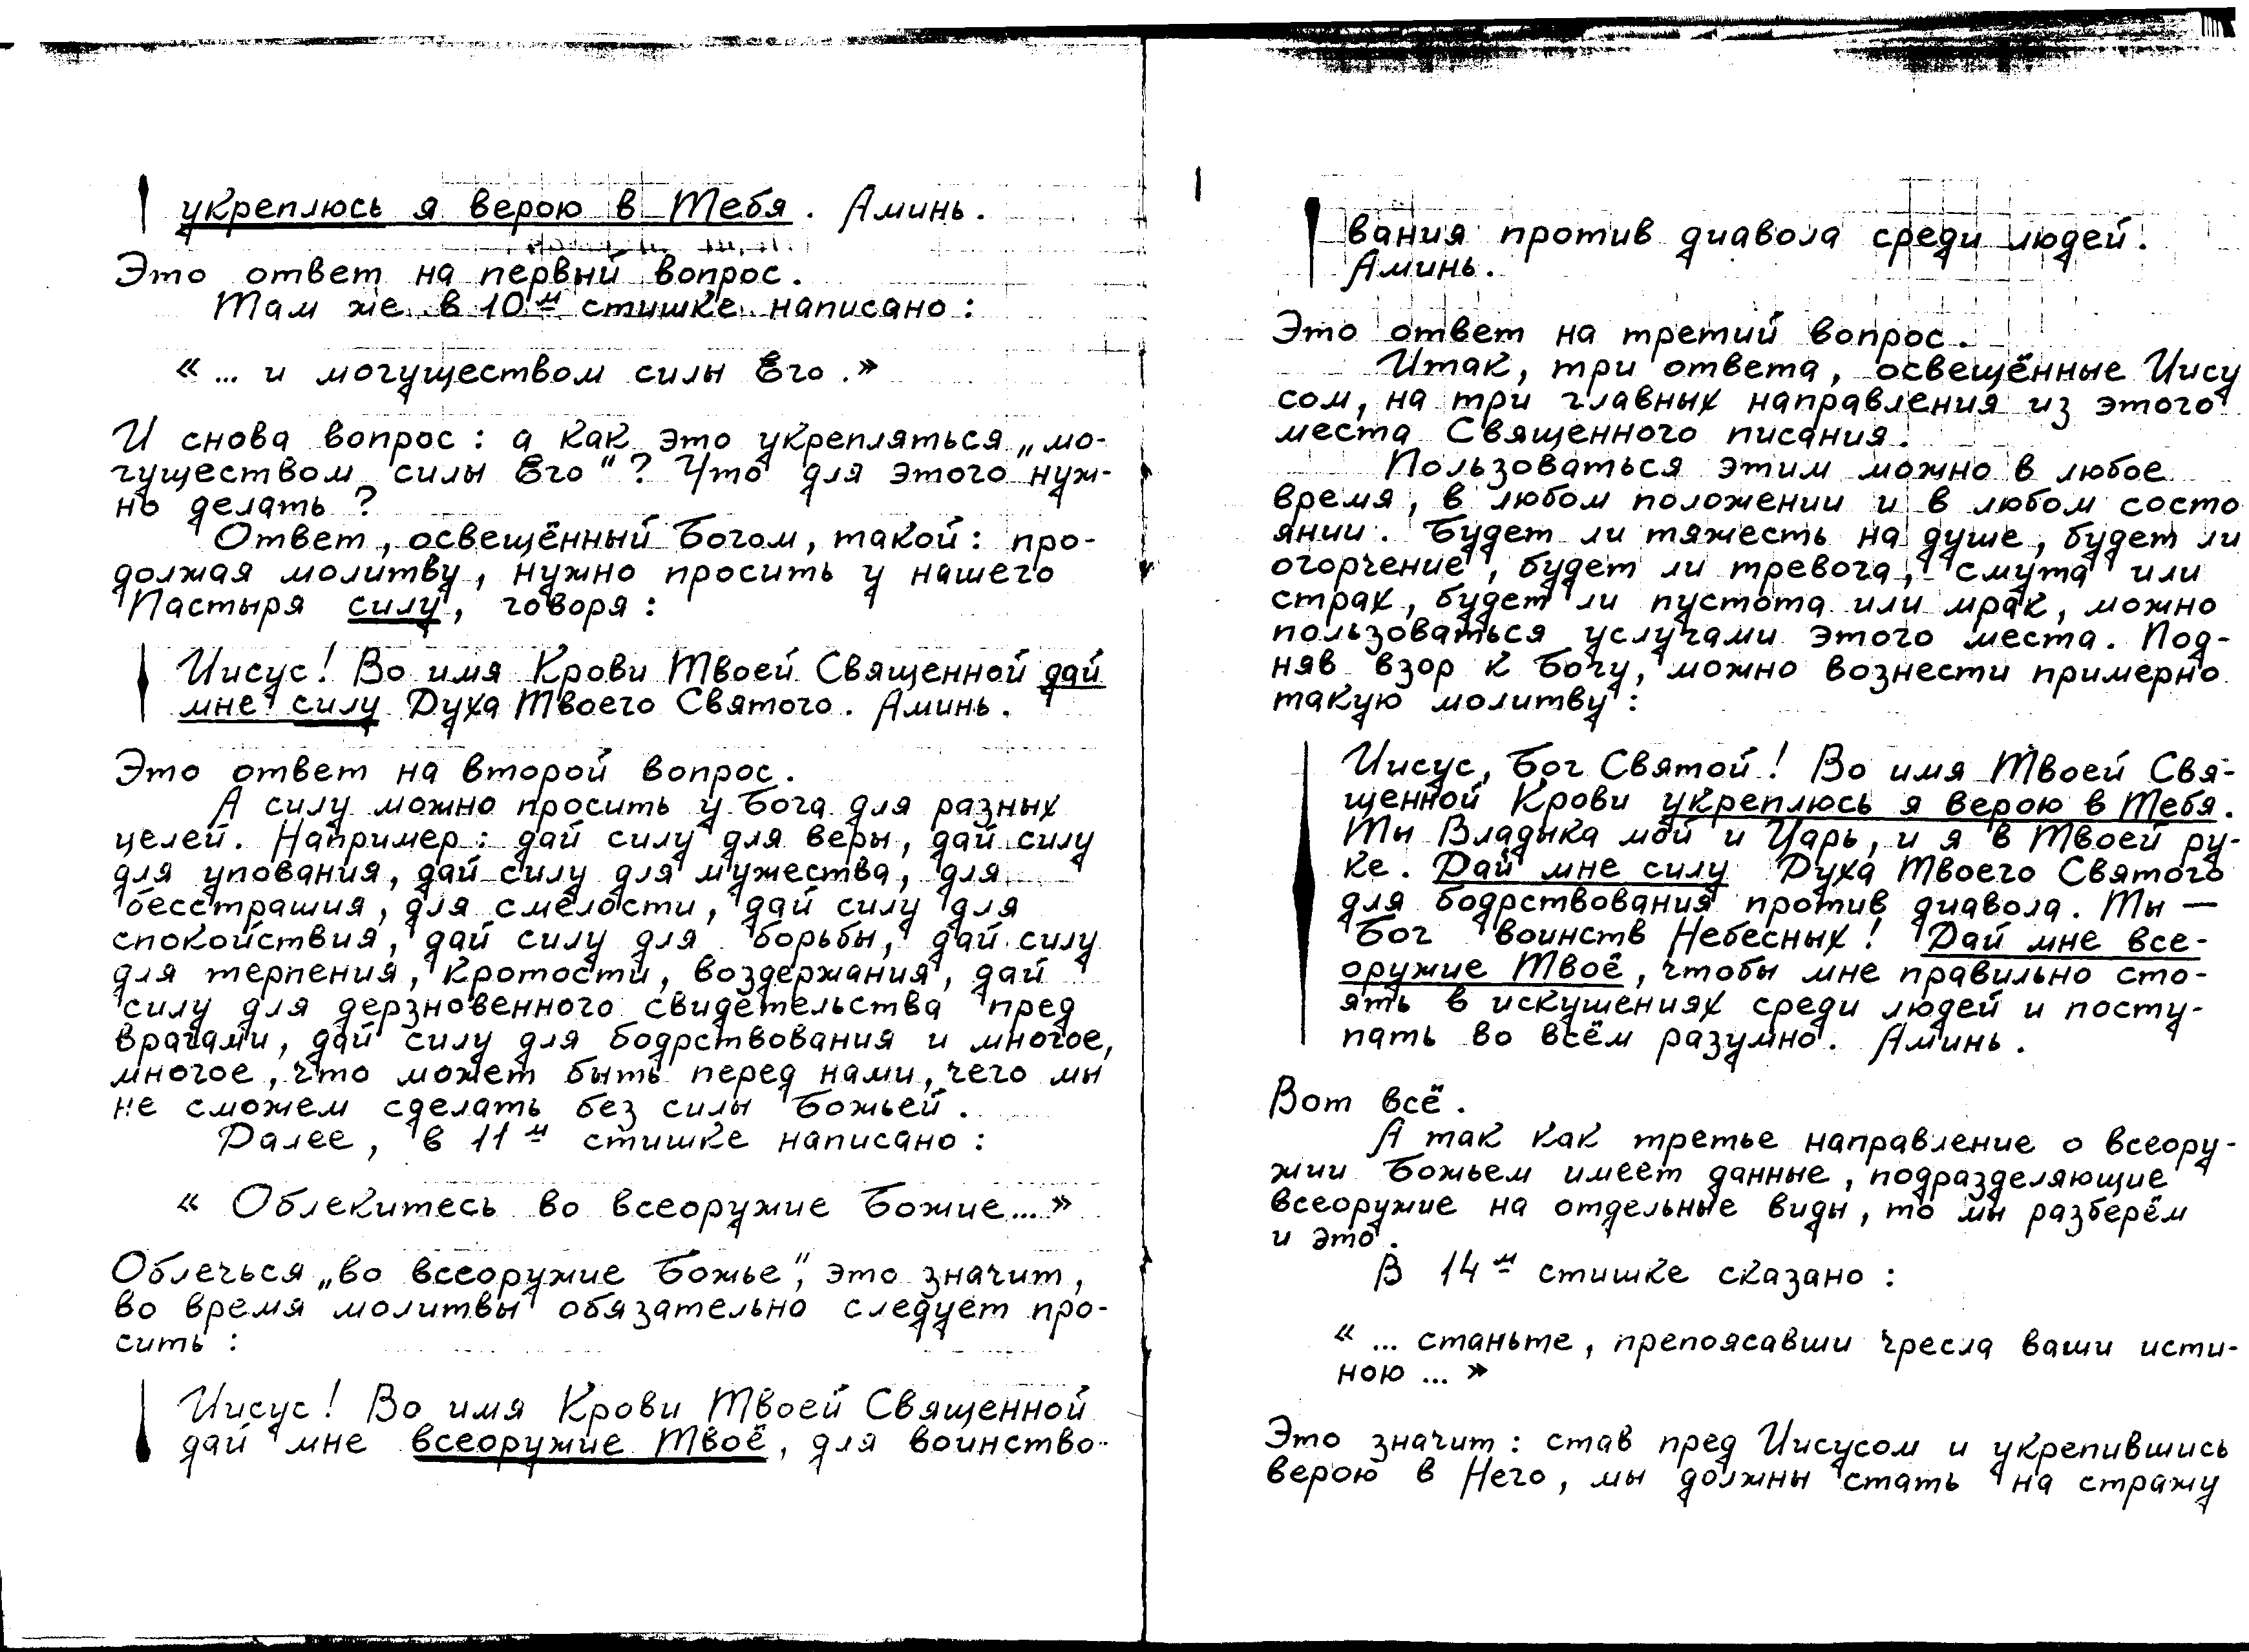 укреплюсь я верою в Тебя. Аминь.
Это ответ на первый вопрос.
Там же в 10м стишке написано:
«... и могуществом силы Его.»
И снова вопрос: а как это укрепляться „мо-
гуществом силы Его"? Что для этого нуж-
но делать?
Ответ, освещённый Богом, такой: про-
должая молитву, нужно просить у нашего
Пастыря силу, говоря:
Иисус! Во имя Крови Твоей Священной дай
мне силу Духа Твоего Святого. Аминь.
Это ответ на второй вопрос.
А силу можно просить у Бога для разных
целей. Например: дай силу для веры, дай силу
для упования, дай силу для мужества, для
бесстрашия, для смелости, дай силу для
спокойствия, дай силу для борьбы, дай силу
для терпения, кротости, воздержания, дай
силу для дерзновенного свидетельства пред
врагами, дай силу для бодрствования и многое,
многое, что может быть перед нами, чего мы
не сможем сделать без силы Божьей.
Далее, в 11м стишке написано:
« Облекитесь во всеоружие Божие...»
Облечься „во всеоружие Божье", это значит,
во время молитвы обязательно следует про-
сить:
Иисус! Во имя Крови Твоей Священной
дай мне всеоружие Твоё, для воинство-
вания против диавола среди людей.
Аминь.
Это ответ на третий вопрос.
Итак, три ответа, освещённые Иису
сом, на три главных направления из этого
места Священного писания.
Пользоваться этим можно в любое
время, в любом положении и в любом состо
янии. Будет ли тяжесть на душе, будет ли
огорчение, будет ли тревога, смута или
страх, будет ли пустота или мрак, можно
пользоваться услугами этого места. Под-
няв взор к Богу, можно вознести примерно
такую молитву:
Иисус, Бог Святой! Во имя Твоей Свя-
щенной Крови укреплюсь я верою в Тебя.
Ты Владыка мой и Царь, и я в Твоей ру-
ке. Дай мне силу Духа Твоего Святого
для бодрствования против диавола. Ты —
Бог воинств Небесных! Дай мне все-
оружие Твоё, чтобы мне правильно сто-
ять в искушениях среди людей и посту-
пать во всём разумно. Аминь.
Вот всё.
А так как третье направление о всеору-
жии Божьем имеет данные, подразделяющие
всеоружие на отдельные виды, то мы разберём
и это.
В 14м стишке сказано:
«... станьте, препоясавши чресла ваши исти-
ною ... »
Это значит: став пред Иисусом и укрепившись
верою в Него, мы должны стать на стражу